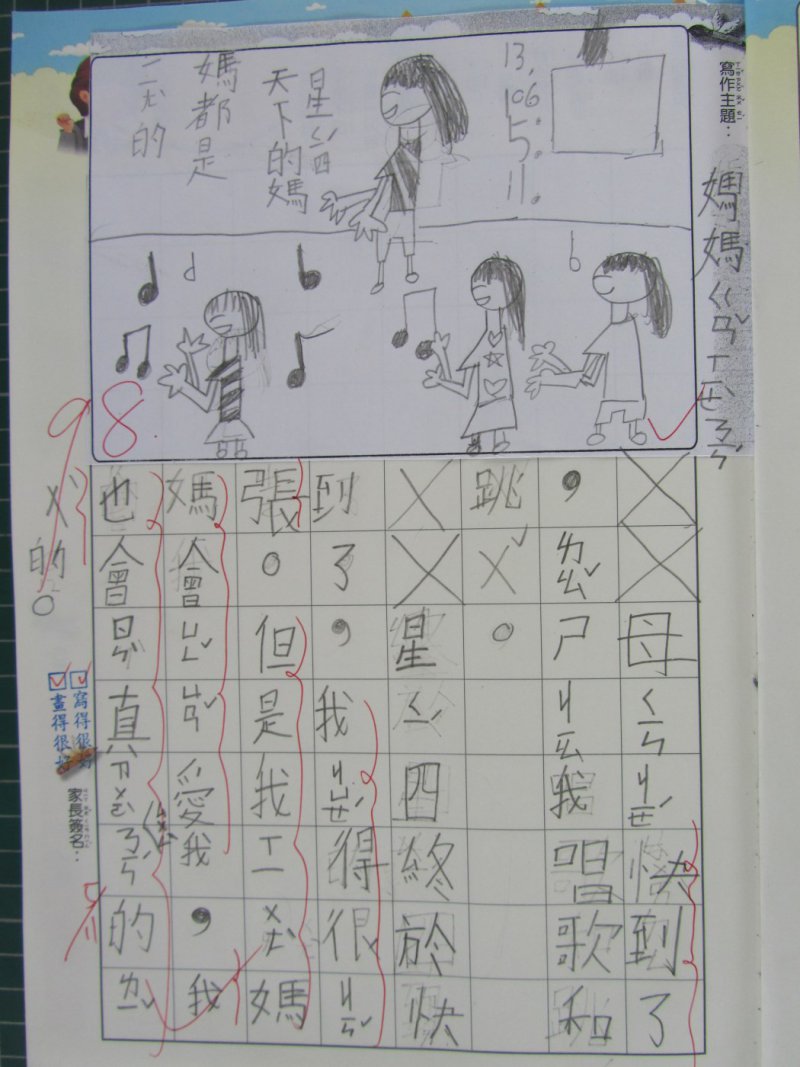 寫作主題：
媽媽ㄍㄢˇㄒㄧㄝˋㄋㄧㄣˊ
13,
106.
5.
11.
星ㄑㄧˊ四
天下的媽
媽都是
的
98.
母ㄑㄧㄣㄐㄧㄝˊ快到了
，ㄌㄠˇㄕㄐㄧㄠ我唱歌和
跳ㄨˇ。
星ㄑㄧˊ四終於快
到了，我ㄐㄩㄝˊ得很ㄐㄧㄣˇ
張。但是我ㄒㄧㄨㄤˋ媽
媽會ㄩㄥˇㄩㄢˇ愛我，我
也會ㄖㄣˋ真的ㄌㄧˇ
ㄨˋ的。
寫得很好
畫得很好
家長簽名：